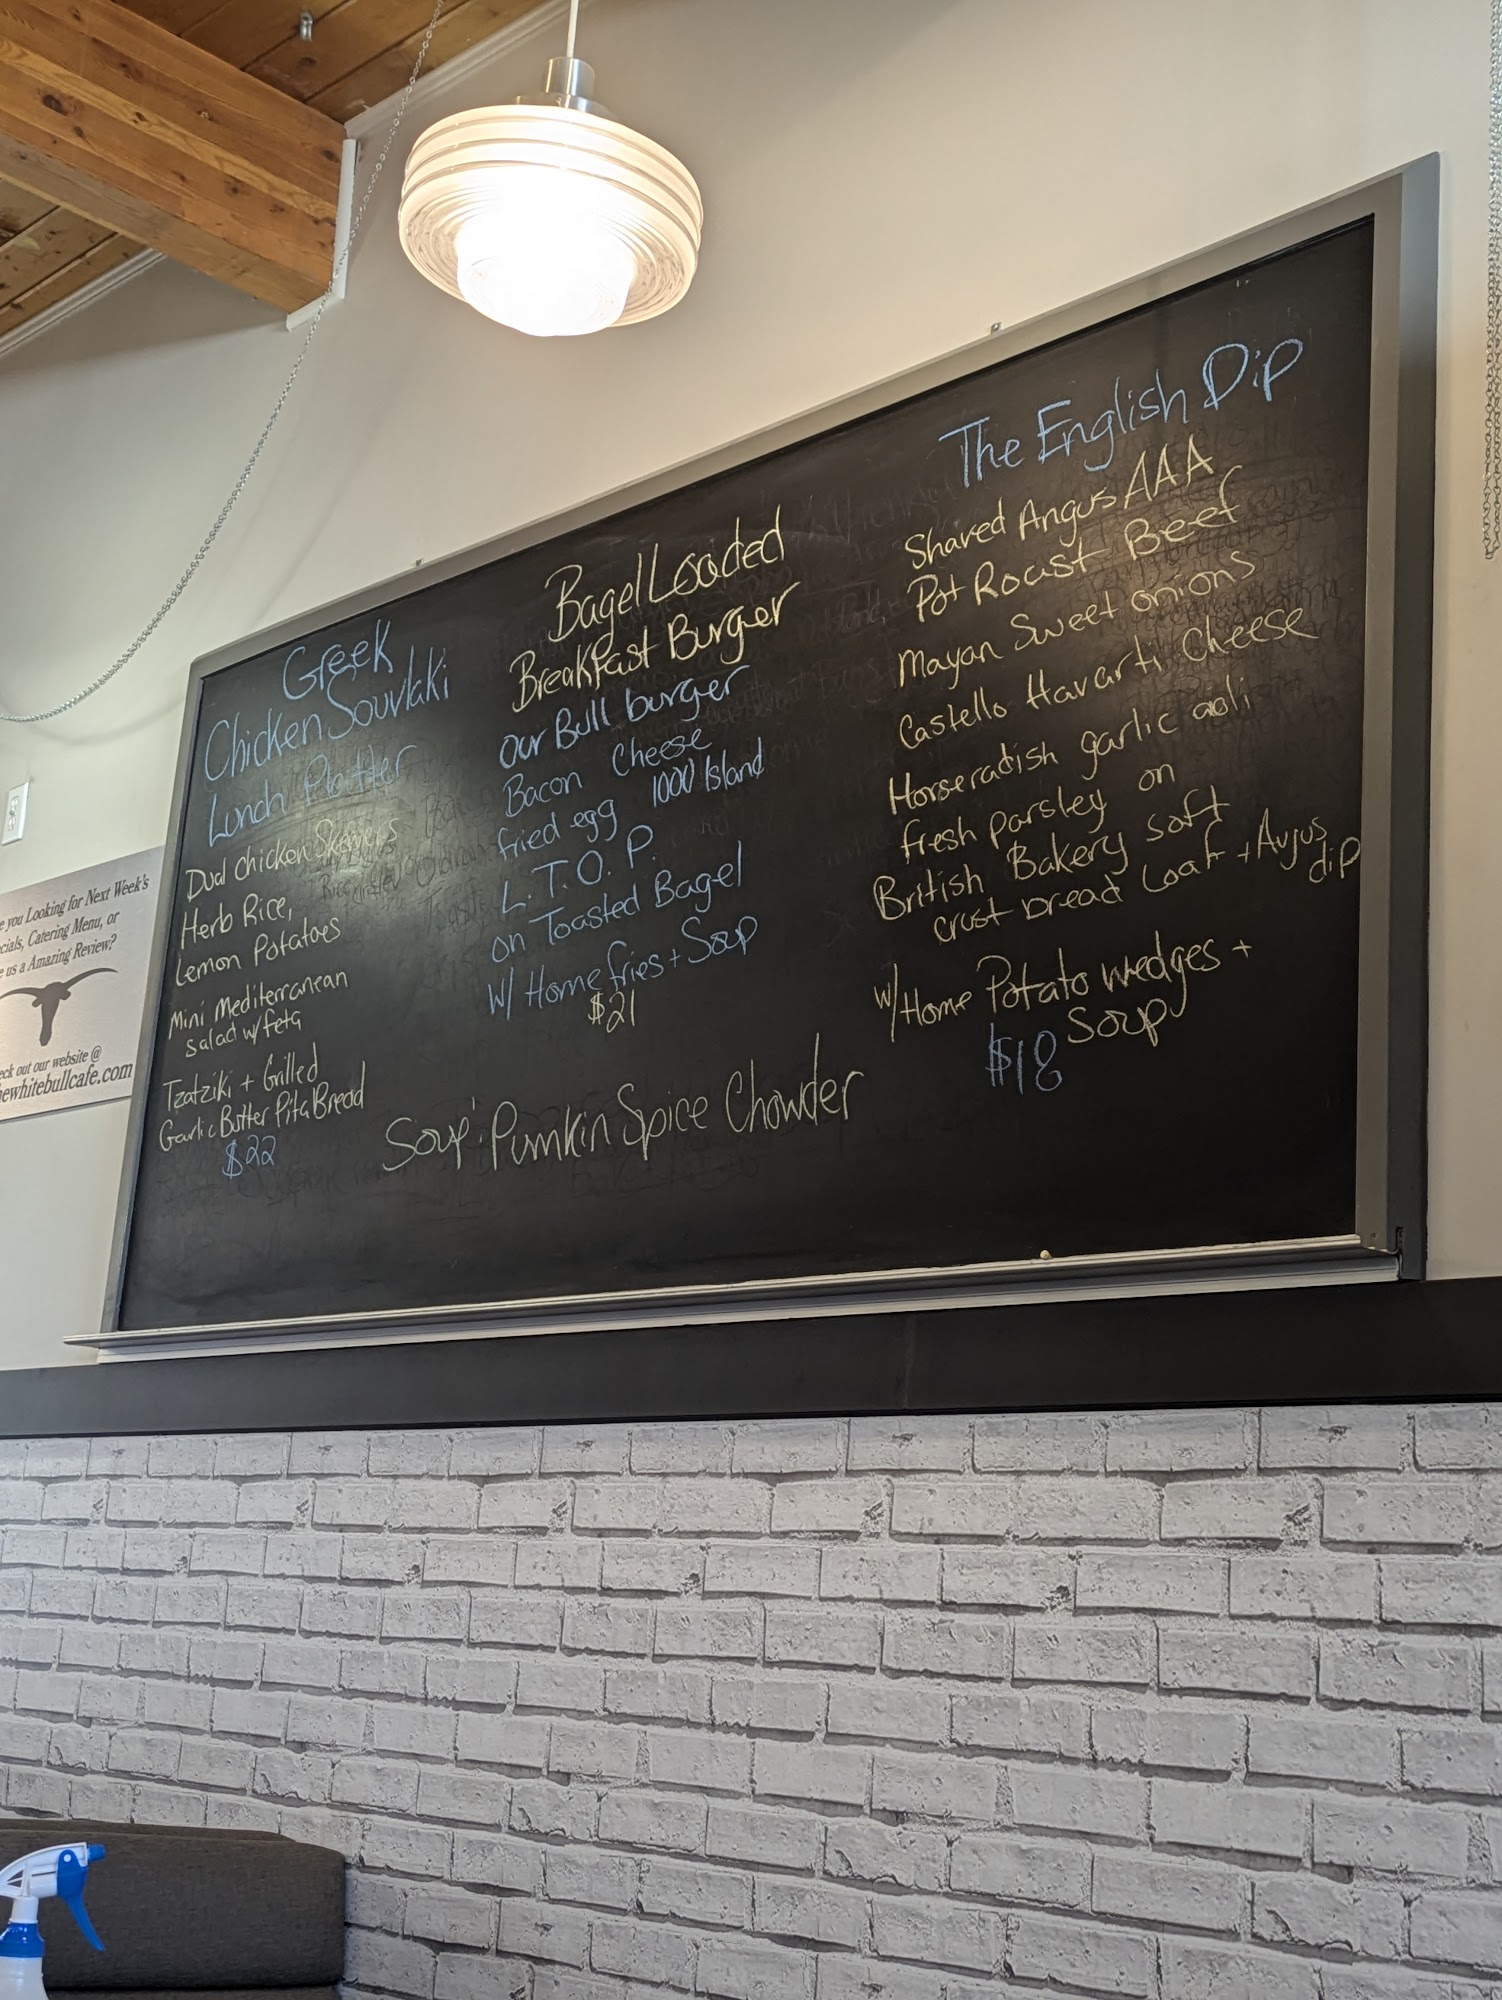 Greek
Chicken Souvlaki
Lunch Platter
Dual chicken Skewers
Herb Rice,
Lemon Potatoes
Mini Mediterranean
salad w/ feta
Tzatziki + Grilled
Garlic Butter Pita Bread
$22
Bagel Loaded
Breakfast Burger
our Bull burger
Bacon Cheese
fried egg 1000 Island
L.T.O.P.
on Toasted Bagel
w/ Home fries + Soup
$21
The English Dip
Shaved Angus AAA
Pot Roast Beef
Mayan Sweet onions
Castello Havarti Cheese
Horseradish garlic aoli
fresh parsley on
British Bakery soft
crust bread Loaf + Augus
dip
w/ Home Potato wedges +
Soup
$18
Soup: Pumkin Spice Chowder
you Looking for Next Week's
Catering Menu, or
us a Amazing Review?
out our website @
whitebullcafe.com